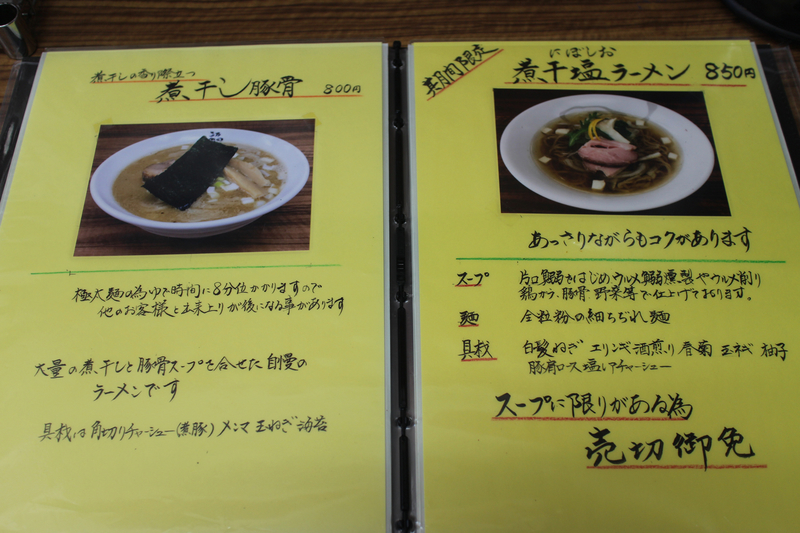 煮干しの香り際立つ
煮干し豚骨 800円
極太麺の為ゆで時間に8分位かかりますので
他のお客様と出来上りが後になる事があります
大量の煮干しと豚骨スープを合せた自慢の
ラーメンです
具材は角切りチャーシュー(煮豚)メンマ玉ねぎ海苔
期間限定
にぼしお
煮干塩ラーメン 850円
あっさりながらもコクがあります
スープ 片口鰯をはじめウルメ鰯燻製やウルメ削り
鶏ガラ、豚骨 野菜等で仕上げております。
麺 全粒粉の細ちぢれ麺
具材 白髪ねぎ エリンギ酒煎り 春菊 玉ネギ 柚子
豚肩ロース塩レアチャーシュー
スープに限りがある為
売切御免